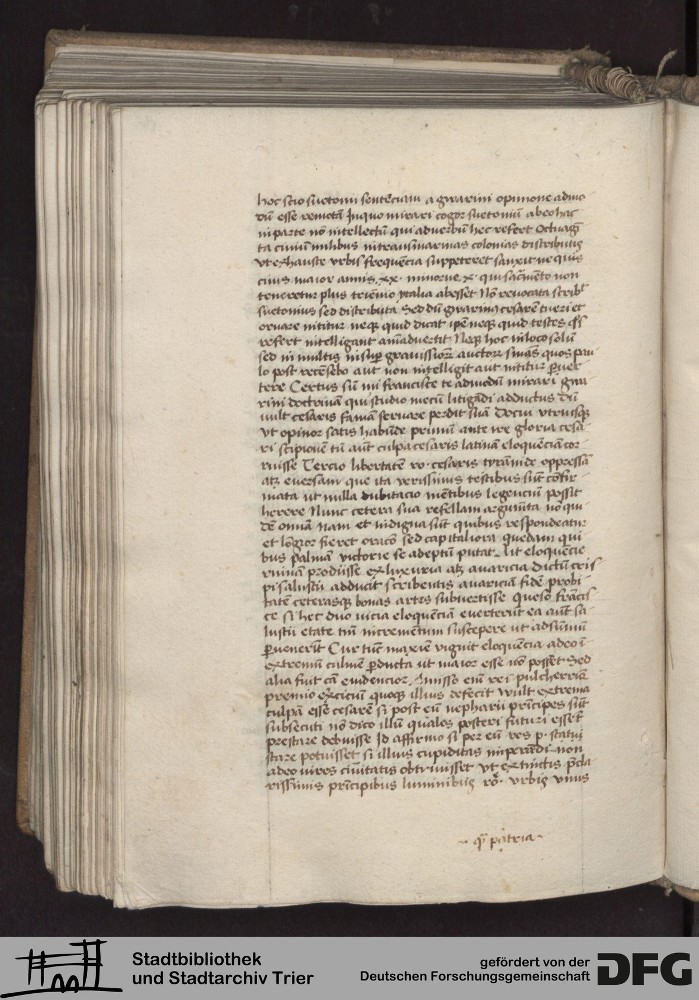 hoc scio suetonii sentēciam a gwarini opinione admo
dū esse remotā Inquo mirari cogor suetoniū ab eo hac
in parte nō intellectū qui ad verbū hec refert Octuagī
ta ciuiū milibus in transmarinas colonias distributis
vt exhauste vrbis frequēcia suppeteret sanxit ne quis
ciuis maior annis .xx. minorue .x. qui sacramēto non
teneretur plus triēnio ytalia abesset Nō reuocata scribit
suetonius sed distributa Sed dū gwarinus cesarē tueri et
ornare nititur neqz quid dicat ipē neqz quid testes qs
refert intelligant aīaduertit Neqz hoc in loco solū
sed in multis insup grauissimor auctorū sentencias quos pau
lo post recēsebo aut non intelligit aut nititur puer
tere Certus sū mi francisce te admodū mirari gwa
rini doctrinā qui studio mecū litigādi adductus dū
vult cesaris famā seruare perdit suā Docui vtrūqz
vt opinor satis habūde primū ante ire gloria cesa
ri scipionē tū aūt culpa cesaris latinā eloquēciā cor
ruisse Tercio libertatē ro. cesaris tyrānide oppressā
atz euersam que ita verissimis testibus sūt cōfir
mata ut nulla dubitacio mētibus legenciū possit
herere Nunc cetera sua refellam argumēta nō qui
dē omnia nam et indigna sūt quibus respondeatur
et lōgior fieret oracō sed capitaliora quedam qui
bus palmā victorie se adeptū putat Ait eloquēcie
ruinā prodiisse ex luxuria atz auaricia dictū cris
pi salustii adducit scribentis auariciā fidē probi
tatē ceterasqz bonas artes subuertisse Queso frācis
ce si hec duo vicia eloquēciā euerterūt ea aūt sa
lustii etate tm incrementum suscepere ut ad summū
puenerūt Cur tūc maxīe viguit eloquēcia adeo ī
extremū culmē pducta ut maior esse nō posset Sed
alia fuit cā euidencior. Amisso enī rei pulcherrīe
premio exercitiū quoqz illius defecit Wult extrema
culpā esse cesarē si post eū nepharii prīcipes sūt
subsecuti nō dico illū quales posteri futuri essēt
prestare debuisse Id affirmo si per eū res p. statui
stare potuisset si illius cupiditas imperādi non
adeo vires ciuitatis obtriuisset vt extinctis pcla
rissimis prīcipibus luminibus ro. vrbis vnus
qz patria
Stadtbibliothek
und Stadtarchiv Trier
gefördert von der
Deutschen Forschungsgemeinschaft
DFG